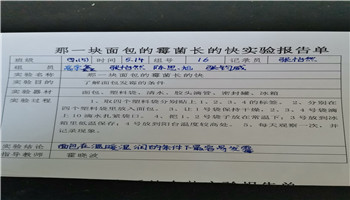 那一块面包的霉菌长的快实验报告单
班级 时间 5.14 组号 16 记录员 张怡然
组员 陈思旭
实验名称 那一块面包的霉菌长的快
实验目的 了解面包发霉的条件
实验器材 面包、塑料袋、清水、胶头滴管、密封罐、冰箱
实验过程 1、取四个塑料袋分别贴上1、2、3、4的标签。2、分别在
四个塑料袋里放入面包。3、1、2号不滴水,3、4号塑料袋滴上
10滴水扎紧袋口。4、把1、2袋子放在常温下;3号放到冰
箱里低温保存;4号放到阳台温度较高处。5、每天观察一次,并
记录现象。
实验结论 面包在温暖湿润的条件下最容易发霉
指导教师 霍晓波